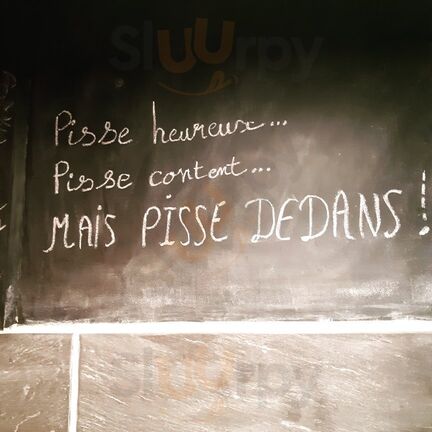 Sluurpy
Pisse heureux...
Pisse content...
MAIS PISSE DEDANS !
Sluurpy